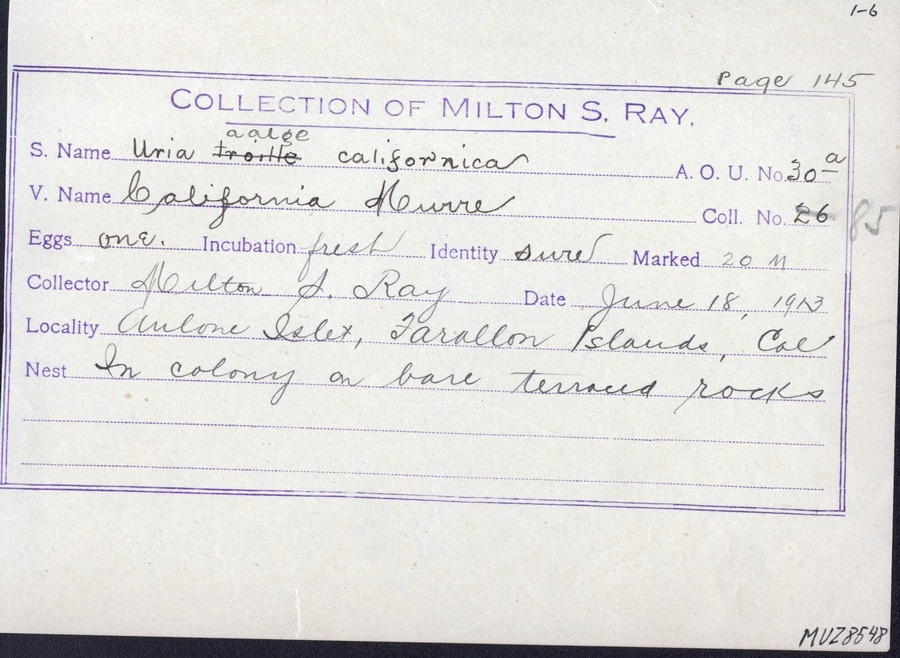 1-6
Page 145
COLLECTION OF MILTON S. RAY.
aalge
S. Name Uria troille californica A. O. U. No. 30 a
V. Name California Murre Coll. No. 26 85
Eggs one. Incubation fresh Identity sure Marked 20 M
Collector Milton S. Ray Date June 18, 1913
Locality Aulone Islet, Farallon Islands, Cal
Nest In colony on bare terraced rocks
MVZ8548